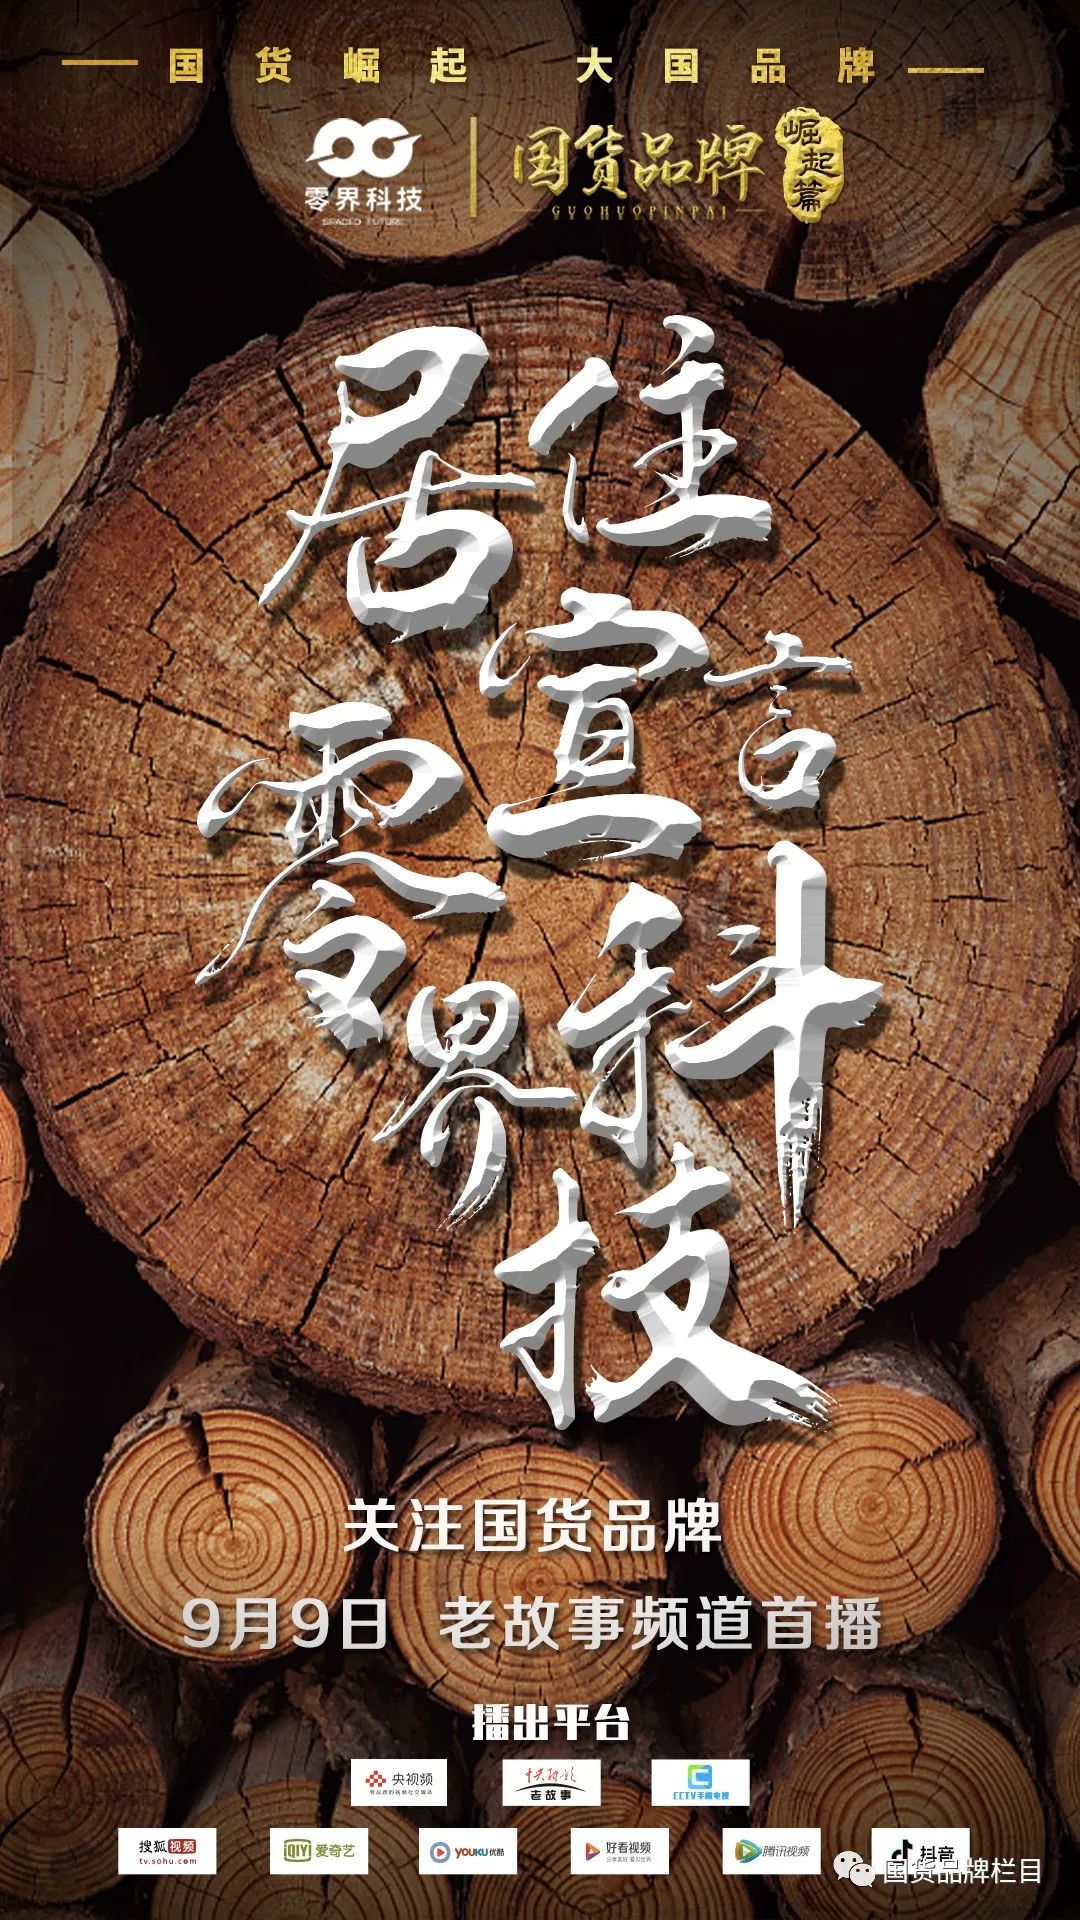 国货崛起 大国品牌
零界科技
SPACED FUTURE
国货品牌
GUOHUOPINPAI
崛起篇
居住
宣言
零界科技
关注国货品牌
9月9日 老故事频道首播
播出平台
央视频
有品质的视频社交媒体
中央新影
老故事
CCTV手机电视
搜狐视频
tv.sohu.com
iQIYI 爱奇艺
YOUKU优酷
好看视频
分享美好 看见世界
腾讯视频
抖音
国货品牌栏目